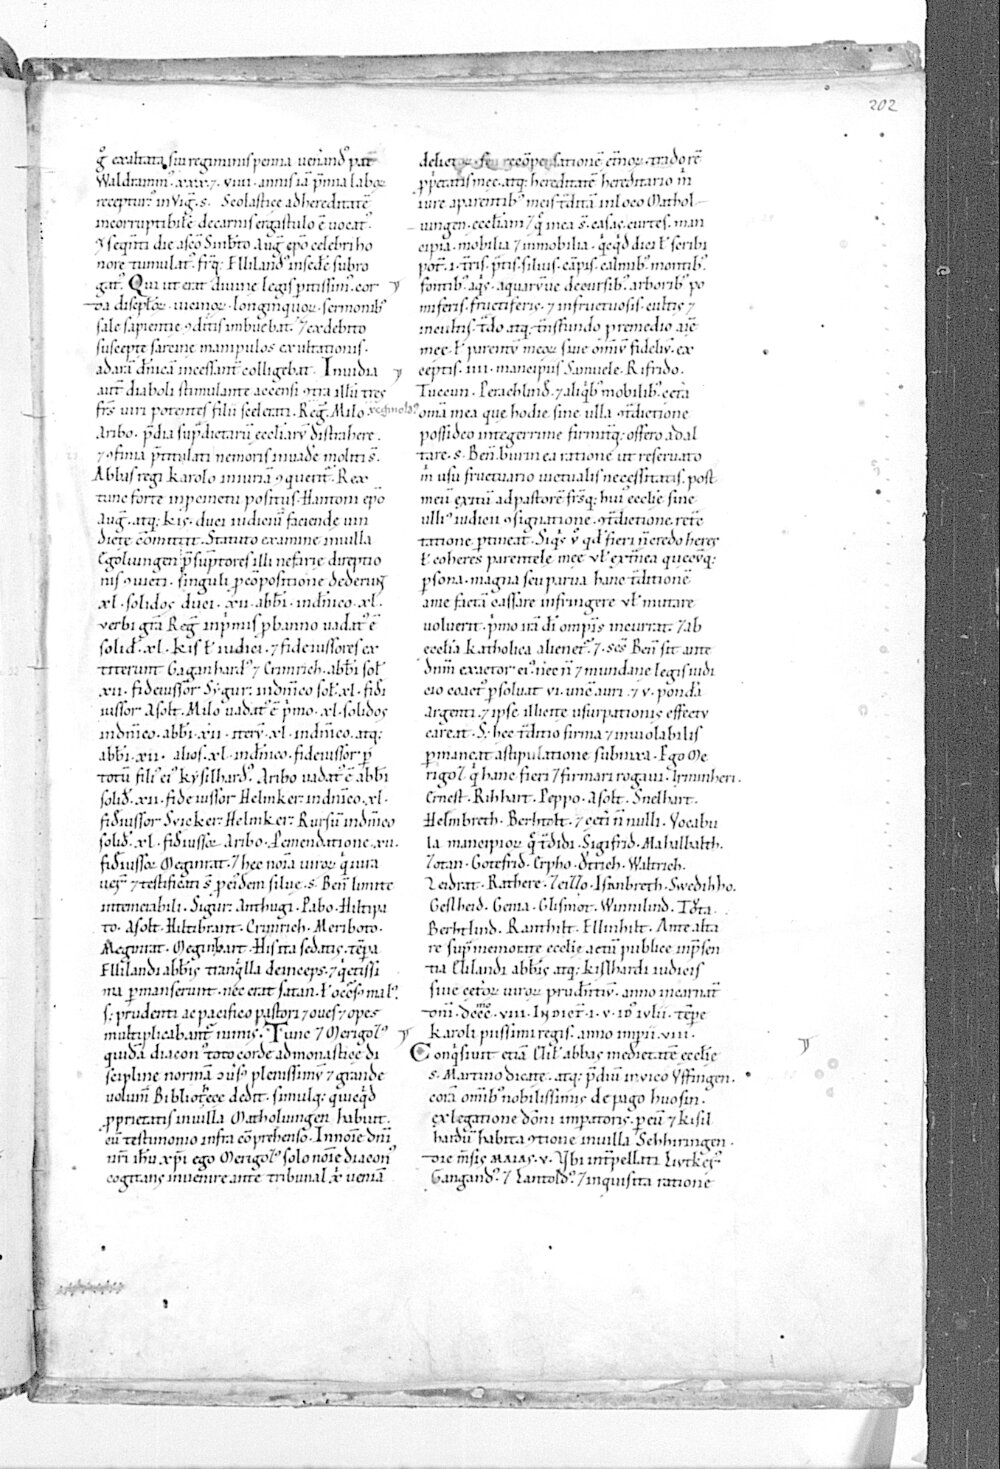 202
g̅ exaltata sui regiminis penna veñand᷒ pat̅
Waldramm᷒. xxx.7. viiii. annis iã p̃mia labor
recepturᵒ in viĝ. s. Scolastice ad hereditatẽ
incorruptibilẽ decarnis ergastulo ẽ vocat᷒.
7 seqn̄ti die ascõ Sintb̄to Aug̃ ep̃o celebri ho
nore tumulat᷒. fr̃q; Ellilandᵒ insedẽ subro
gat᷒. Qui ut erat divine legis p̱itissim᷒. cor
da discip̃loꝝ. vicinoꝝ. longinquoꝝ. sermonib᷒
sale sapientie ↄditis imbuebat. 7 ex debito
suscepte sarcine manipulos exultationis.
ad arã dñicã incessant̃ colligebat. Invidia
aut̃ diaboli stimulante accensi ↄtra illũ tres
fr̃s viri potentes filii scelerati. Reĝ. Milo
Aribo. p̃dia sup̃dictarũ eccliarv̄ distrahere.
7 ↄfinia p̃titulati nemoris invade moliti s̃.
Abbas regi karolo iniuriã ↄquerit᷒. Rex
tunc forte inpoemetu positus. Hantoni ep̃o
Aug̃. atq; kis. duci iudiciũ faciende vin
dicte cõmittit. Statuto examine in villa
Egoluingen p̃sũptores illi nefarie direptio
nis ↄvicti. singuli p̱ cõpositione dederunt
xl. solidos duci. xii. abb̃i. indñico. xl.
verbi gr̃a Reĝ inp̃mis p̱ banno vadat᷒ ẽ
solid᷒. xl. kis ł iudici. 7 fideiussores ex
titerunt Gaganhard᷒ 7 Crimrich. abb̃i soł
xii. fideiussor Sigur. indñico soł. xl. fidi
iussor Asolt. Milo vadat᷒ ẽ p̃mo. xl. solidos
indñico. abb̃i. xii. iterv̄. xl. indñico. atq;
abb̃i. xii. alios. xl. indñico. fideiussor p̱
totũ filiᵒ eiᵒ kysilhardᵒ. Aribo vadat᷒ ẽ abb̃i
solid᷒. xii. fideiussor Helmker. indñico. xl.
fid̃iussor Svicker. Helmker. Rursũ indñico
solid᷒. xl. fid̃iussor Aribo. P̱ emendatione. xii.
fid̃iussor Meginrat. 7 hec noĩa viroꝝ q̃ iura
ver᷒ 7 testificati s̃ p̱ eidem silve. s. Beñ limite
intenciabili. Sigur. Anthugi. Pabo. Hiltipa
to. Asolt. Hiltibrant. Crimrich. Meriboto.
Meginrat. Meginhart. His ita sedatis. tẽp̱a
Ellilandi abb̃is tranq̃lla deinceps. 7 q̃etissi
ma p̱manserunt. nec erat satan. ł occ̃s᷒ malᵒ.
s; prudenti ac pacifico pastori 7 oves 7 opes
multiplicabant᷒ nimis. Tunc 7 Merigol᷒
quidã diacon᷒ toto corde ad monasticẽ di
scipline normã ↄũs᷒ plenissimv̄ 7 grande
volum̃ Bibliotc̃e dedit. simulq; quicq̃d
p̱prietatis in villa Matholuingen habuit.
cũ testimonio infra cõprehenso. In noĩe dñi
nr̃i ih̃u xp̃i ego Merigol᷒ solo noĩe diacon᷒
cogitans invenire ante tribunal x̃ veniã
delictoꝝ. seu recõpensatione et̃noꝝ. trado rẽ
p̱p̱etatis mee. atq; hereditatẽ hereditario m̃
iure a parentib᷒ meis tr̃ditã in loco Mathol
uingen. eccliam 7 q̃ mea s̃. casas. curtes. man
cipia. mobilia 7 inmobilia. q̃cq̃d dici ł scribi
pot᷒. i. tr̃is. p̃tis. silvis. cãpis. calmib᷒. montib᷒.
fontib᷒. aq̃s. aquarv̄ue decursib᷒. arborib᷒ po
miferis. fructiferis. 7 infructuosis. cultis 7
incultis. tr̃do atq; tr̃nsfundo premedio aĩe
mee. ł parentv̄ meoꝝ sive omĩv̄ fideliv̄. ex
ceptis. iiii. mancipiis Samuele. Risfrido.
Tuccun. Perachlind. 7 aliq̃b᷒ mobilib᷒. cet̃a
om̃ia mea que hodie sine ulla ↄt̃dictione
possideo integerrime firmit̃q; offero ad al
tare. s. Beñ. Burin ea ratione ut reservato
m̃ usu fructuario victualis necessitatis. post
meũ exitũ ad pastorẽ frs̃q; huiᵒ ecclie sine
ulliᵒ iudicii ↄsignatione. ↄt̃dictione. rete̅
tatione p̱tineat. Siq̃s v̊ qd̃ fieri ñ credo heres
ł coheres parentele mee. vł extr̃nea quecv̄q;
p̱sona. magna seu parva hanc tr̃ditionẽ
a me factã cassare infringere vł mutare
voluerit. p̃mo irã dĩ omp̃tis incurrat. 7 ab
ecclia katholica alienet᷒. 7. scs̃ Beñ sit ante
dñm exactor eiᵒ. nec ñ 7 mundane legis iudi
cio coact᷒ p̱solvat vi. uncẽ auri. 7 v. pond̃a
argenti. 7 ipse illicite usurpationis effectv̄
careat. S; hec tr̃ditio firma 7 inviolabilis
p̱maneat astipulatione subnixa. Ego Me
rigol᷒ q̃ hanc fieri 7 firmari rogavi. Irminheri.
Ernest. Rihhart. Peppo. Asolt. Snelhart.
Helmbreth. Berhtolt. 7 cet̃i ñ nulli. Vocabu
la mancipioꝝ q̃ tr̃didi. Sigifrid. Mahulhalth.
Zotan. Gotefrid. Erpho. D̃trich. Waltrich.
Leidrat. Rathere. Zeizzo. Isanbreth. Swedihho.
Geslheid. Gema. Glismot. Winnilind. Ida.
Berhtlind. Ranthilt. Ellinhilt. Ante alta
re sup̱memorate ecclie actũ publice inp̃sen
tia Elilandi abb̃is atq; kisilhardi iudicis
sive cet̃oꝝ viroꝝ prudẽtiv̄. anno incarnat̃
dñi. dccc. viii. Indict̃. i. v. id᷒ ivlii. tẽp̱e
Karoli piissimi regis. anno imp̱ii. viii.
Conq̃sivit etiã Elil᷒ abbas medietatẽ ecclie
s. Martino dicate. atq; p̃diũ in vico Yffingen.
corã omĩb᷒ nobilissimis de pago huosin.
ex legatione dom̃i imp̱atoris. p̱ eũ 7 kisil
hardũ habita ↄtione in villa Sehhiringen.
die m̃sis maias. v. Ybi int̃pellati Livtker᷒.
Gangand᷒. 7 Lantold᷒. 7 inquisita ratione